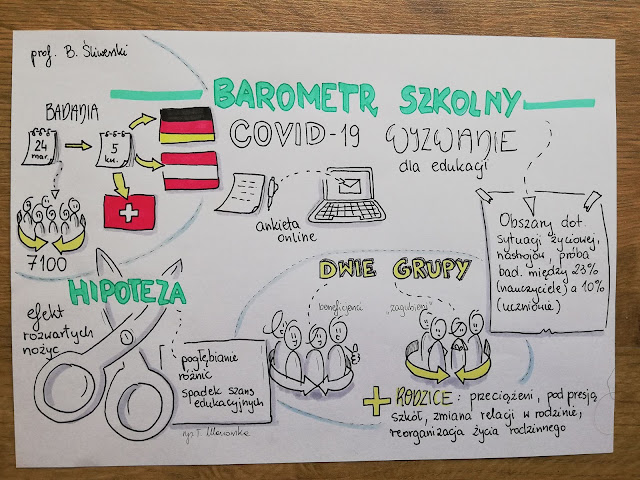 prof. B. Śliwerski
BAROMETR SZKOLNY
COVID-19 WYZWANIE
dla edukacji
BADANIA
24
mar.
5
kw.
7100
ankieta
online
Obszary dot.
sytuacji życiowej,
nastrojów, próba
bad. między 23%
(nauczyciele) a 10%
(uczniowie)
HIPOTEZA
efekt
rozwartych
nożyc
pogłębianie
różnic
spadek szans
edukacyjnych
DWIE GRUPY
beneficjenci
"zagubieni"
+ RODZICE: przeciążeni, pod presją
szkół, zmiana relacji w rodzinie,
reorganizacja życia rodzinnego
rys. T.